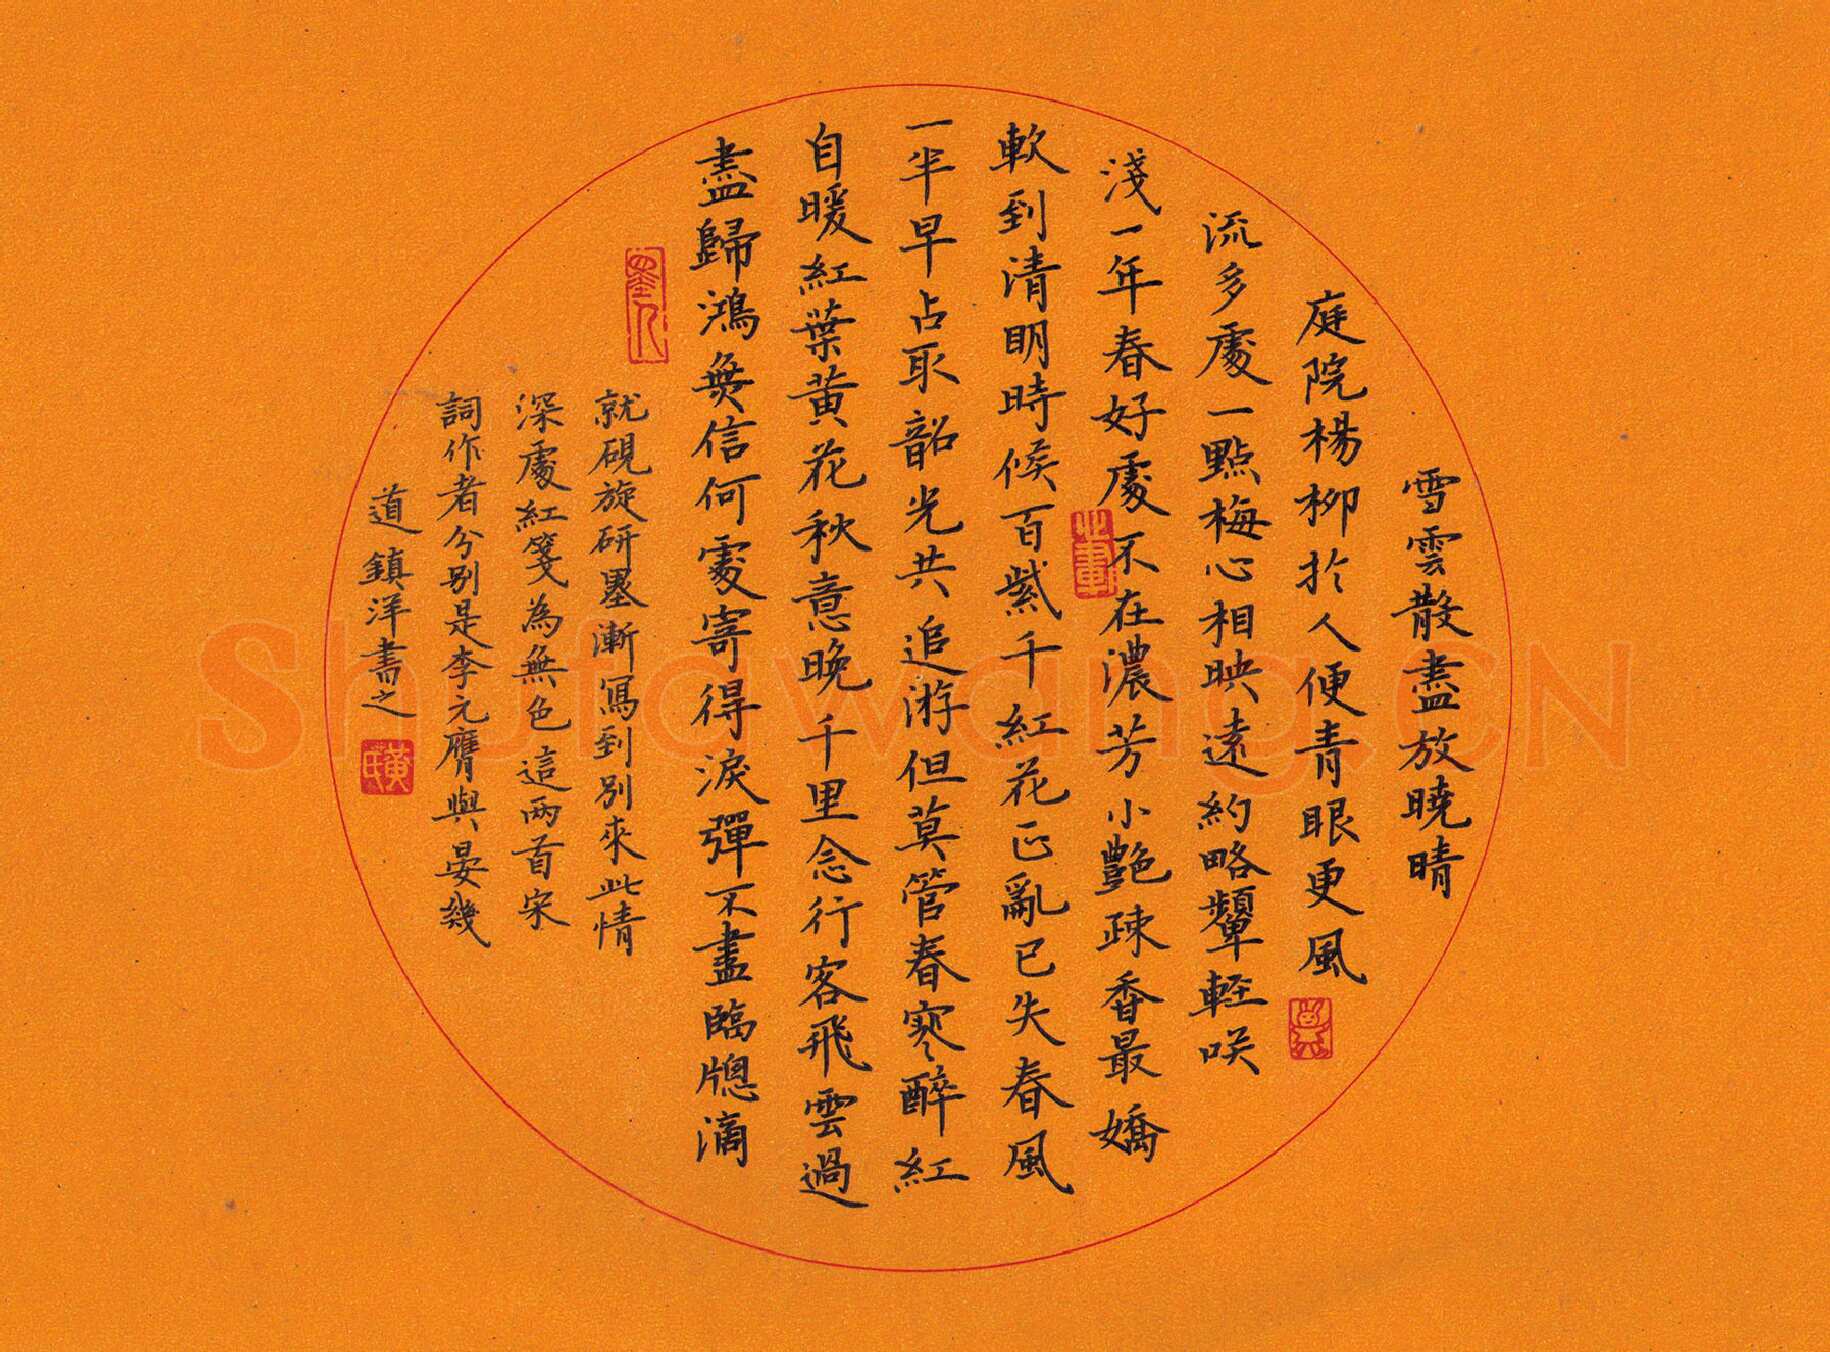 雪雲散盡放曉晴
庭院楊柳於人便青眼更風
流多處一點梅心相映遠約略顰輕咲
淺一年春好處不在濃芳小艷疎香最嬌
軟到清明時候百紫千紅花正亂已失春風
一半早占取韶光共追游但莫管春寒醉紅
自暖紅葉黃花秋意晚千里念行客飛雲過
盡歸鴻無信何處寄得淚彈不盡臨牕滴
就硯旋研墨漸寫到別來此情
深處紅箋為無色這兩首宋
詞作者分別是李元膺與晏幾
道 鎮洋書之
黃氏
Shufawang.CN